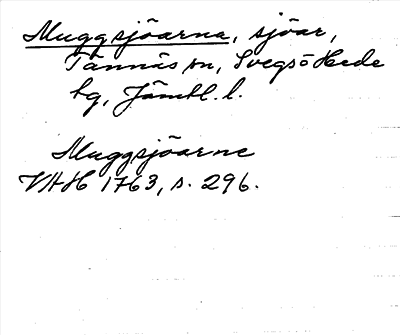 Muggsjöarna, sjöar,
Tännäs sn, Svegs o Hede
tg, Jämtl. l.
Muggsjöarne
VAH 1763, s. 296.